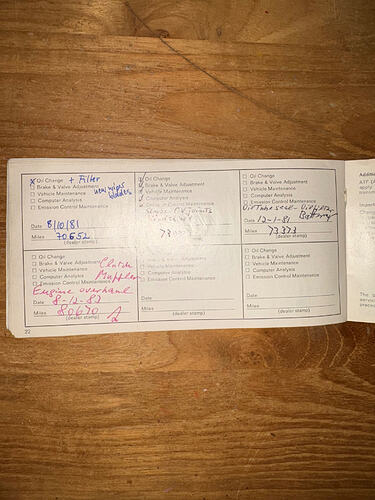 x Oil Change + Filter
Brake & Valve Adjustment
Vehicle Maintenance new wipes
Computer Analysis blades
Emission Control Maintenance
Date 8/10/81
Miles 70652
(dealer stamp)
Oil Change
Brake & Valve Adjustment
Vehicle Maintenance
Computer Analysis
Emission Control Maintenance
Date
(dealer stamp)
Oil Change
Brake & Valve Adjustment
Vehicle Maintenance
Computer Analysis
Emission Control Maintenance
Battery
Date 12-1-81
Miles 73373
(dealer stamp)
Oil Change
Brake & Valve Adjustment Clutch
Vehicle Maintenance
Computer Analysis Muffler
Emission Control Maintenance
Engine overhaul
Date 8-12-83
Miles 80670
(dealer stamp)
Oil Change
Brake & Valve Adjustment
Vehicle Maintenance
Computer Analysis
Emission Control Maintenance
Date
Miles
(dealer stamp)
Oil Change
Brake & Valve Adjustment
Vehicle Maintenance
Computer Analysis
Emission Control Maintenance
Date
Miles
(dealer stamp)
22
ATF
apply